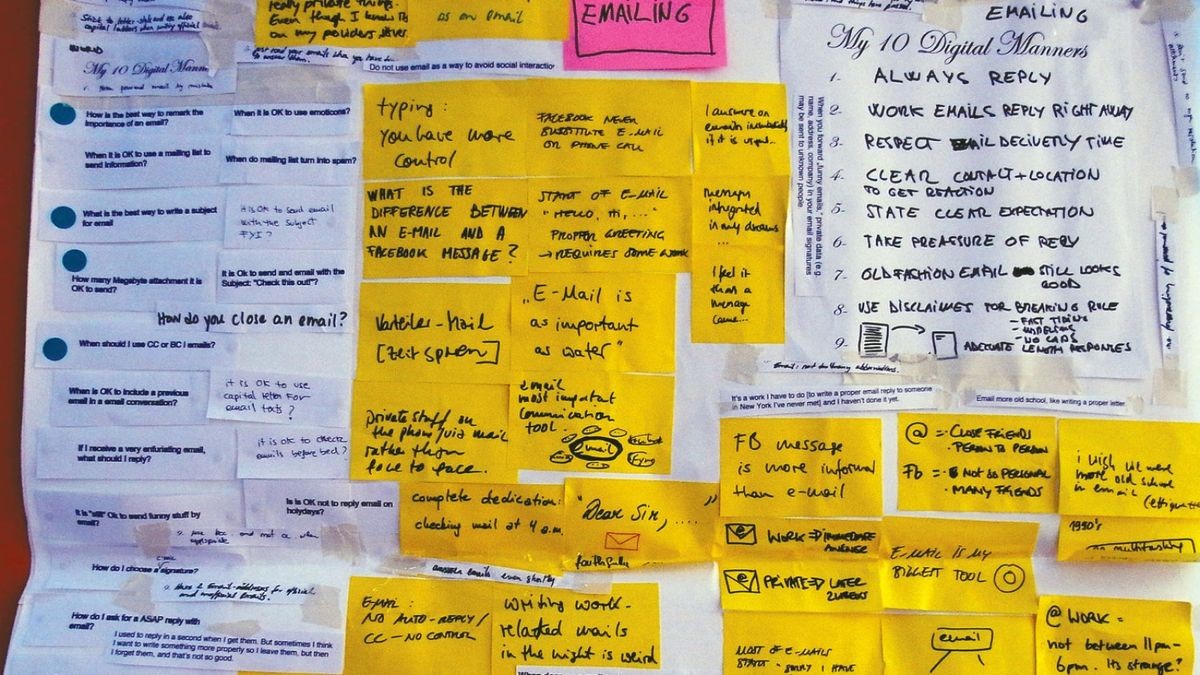 really private things.
on my providers server.
as an email
EMAILING
Do not use email as a way to avoid social interactio
WORLD
My 10 Digital Mann
How is the best way to remark the
importance of an email?
When it is OK to use emoticons?
When it is OK to use a mailing list to
send information?
When do mailing list turn into spam?
What is the best way to write a subject
for email?
it is OK to send email
with the subject
FYI?
How many Megabyte attachment it is
OK to send?
It is Ok to send and email with the
Subject: "Check this out!"?
How do you close an email?
When should I use CC or BC l emails?
When is OK to include a previous
email in a email conversation?
it is OK to use
capital letter for
email texts?
If I receive a very enfuriating email,
what should I reply?
it is ok to check
emails before bed?
Is is OK not to reply email on
holydays?
It is "still" Ok to send funny stuff by
email?
How do I choose a signature?
How do I ask for a ASAP reply with
email?
I used to reply in a second when I get them. But sometimes I think
I want to write something more properly so I leave them, but then
I forget them, and that's not so good.
typing:
you have more
control
FACEBOOK NEVER
SUBSTITUTE E-MAIL
OR PHONE CALL
I answer on
emails immediately
if it is urgent...
WHAT IS THE
DIFFERENCE BETWEEN
AN E-MAIL AND A
FACEBOOK MESSAGE?
START OF E-MAIL
"HELLO, HI, ..."
PROPER GREETING
→ REQUIRES SOME WORK
integrated
in my dreams
I feel it
that a
message
came...
Verteiler-Mail
"E-Mail is
as important
as water"
private stuff on
the phone/via mail
rather than
face to face.
email
most important
communication
tool.
email
complete dedication:
checking mail at 4 a.m.
"Dear Sir, ...."
answer emails even shortly
E-MAIL:
NO AUTO-REPLY/
CC-NO CONTROL
Writing work-
related mails
in the night is weird
EMAILING
My 10 Digital Manners
1. ALWAYS REPLY
2. WORK EMAILS REPLY RIGHT AWAY
3- RESPECT MAIL DELIVERY TIME
4. CLEAR CONTACT+LOCATION
TO GET REACTION
5- STATE CLEAR EXPECTATION
6- TAKE PREASSURE OF REPLY
7. OLD FASHION EMAIL STILL LOOKS
GOOD
8- USE DISCLAIMES FOR BREAKING RULE
- FAST TIPING
- NO CAPS
9- ADECUATE LENGTH RESPONSES
When you forward „funny emails," private data (e.g
name, address, company) in your email signatures
may be sent to unknown people
It's a work I have to do [to write a proper email reply to someone
in New York I've never met] and I haven't done it yet.
Email more old school, like writing a proper letter
FB message
is more informal
than e-mail
@ =· CLOSE FRIENDS
· PERSON TO PERSON
Fb =· NOT SO PERSONAL
· MANY FRIENDS
i wish we were
more old school
in email
1990's
no multitasking
WORK ⇒ IMMEDIATE
PRIVATE ⇒ LATER
E-MAIL IS MY
BIGGEST TOOL
email
MOST OF E-MAILS
START - SORRY I HAVE
@ WORK =
not between 11pm-
6pm. Its strange?